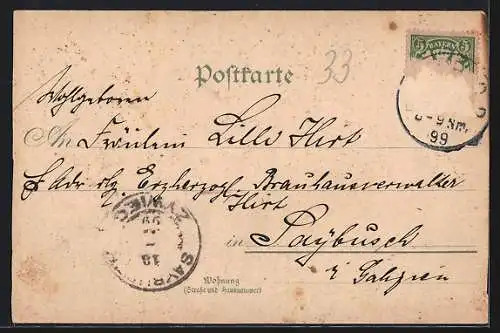 5 BAYERN 5
Postkarte 33
Wohlgeboren
8-9 Nm.
99
An Fräulein Lilli Hirt
Adr Erzherzogl. Brauhausverwalter
Hirt
ŻYWIEC
99
18
SAYBUSCH
in Saybusch
Galizien
Wohnung
(Straße und Hausnummer)